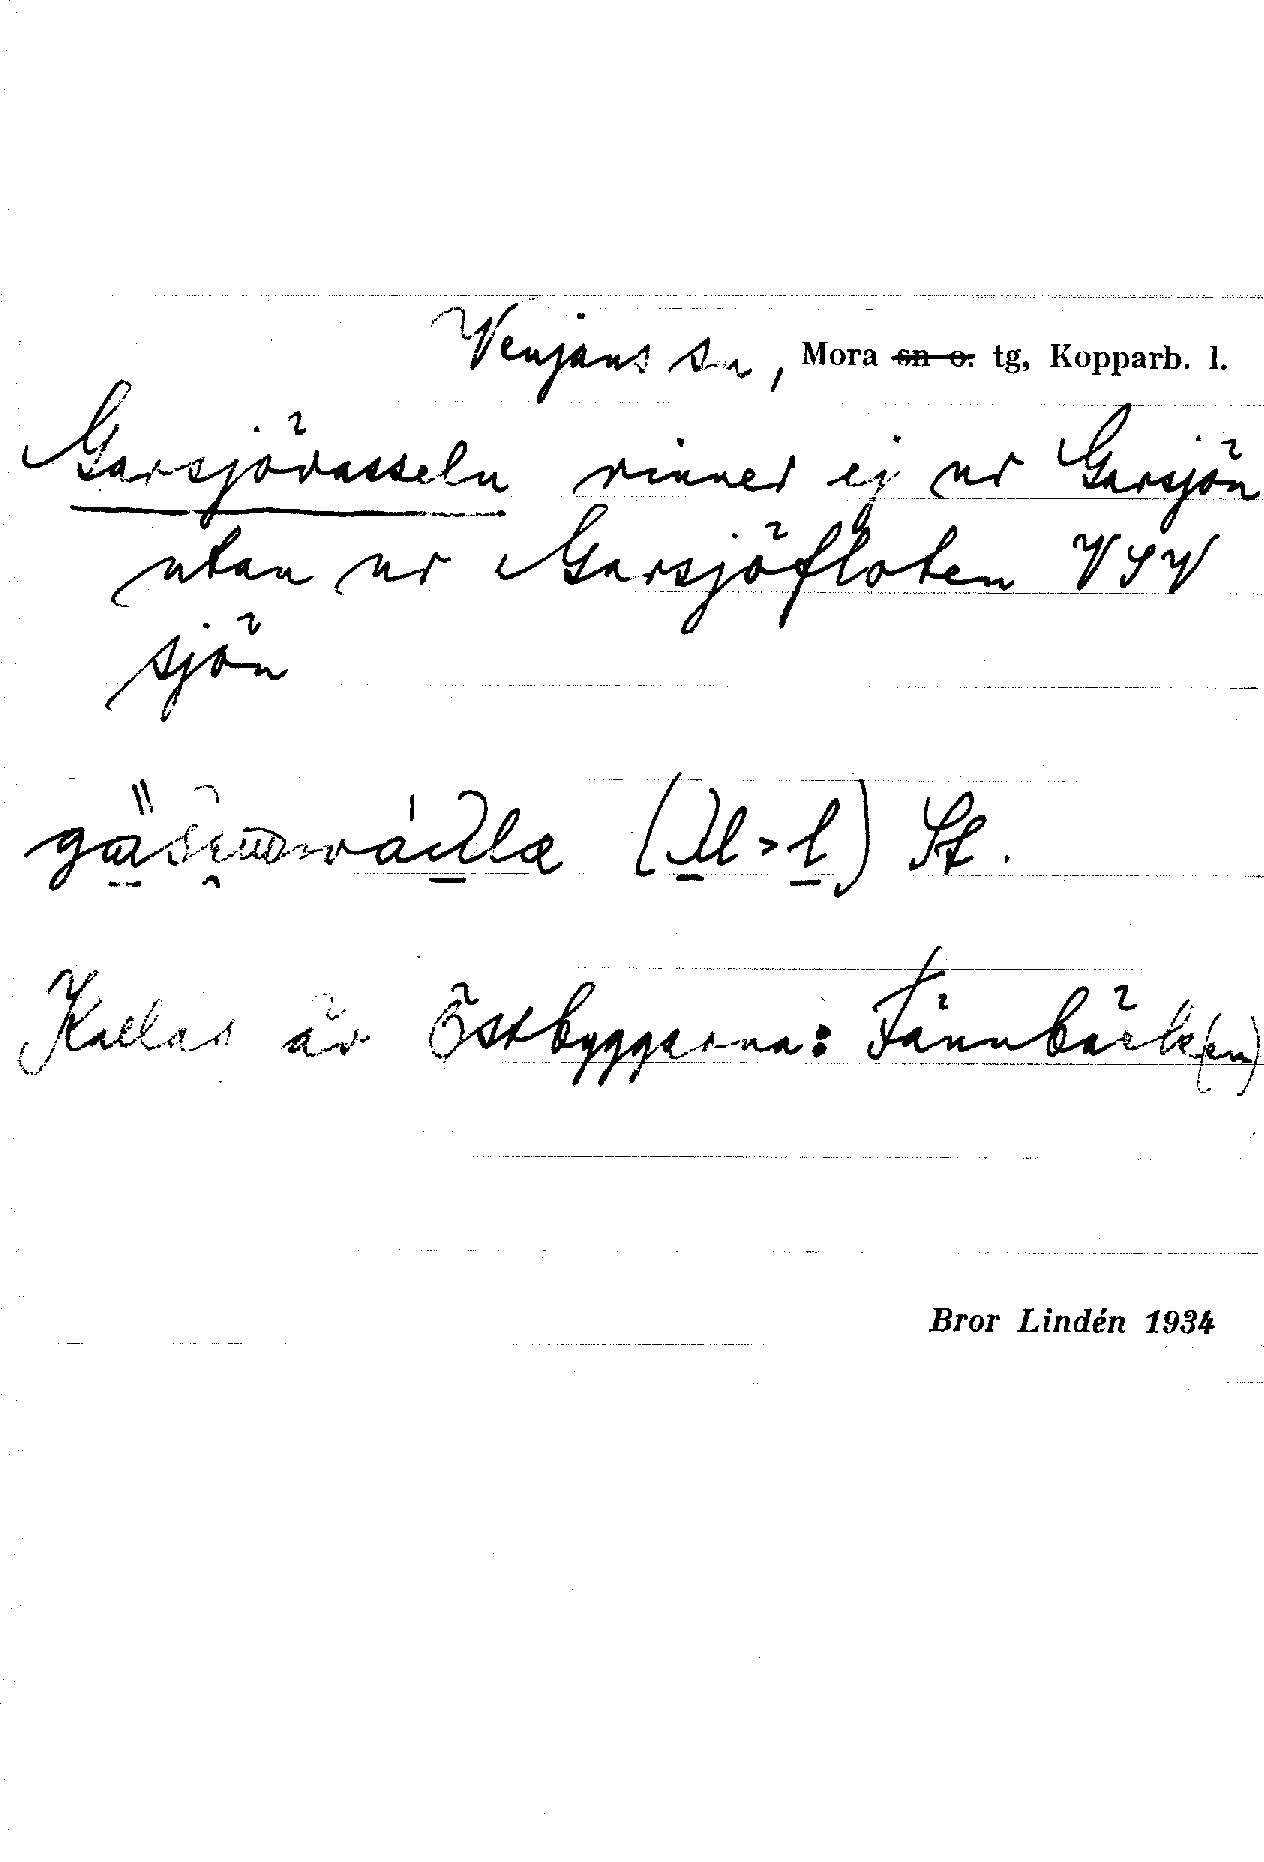 Venjans sn, Mora ~~sn o.~~ tg, Kopparb. l.
Garsjövasseln rinner ej ur Garsjön
utan ur Garsjöfloten VSV
sjön
St.
Kallas av Östbyggarna: Fännbäck(en)
Bror Lindén 1934